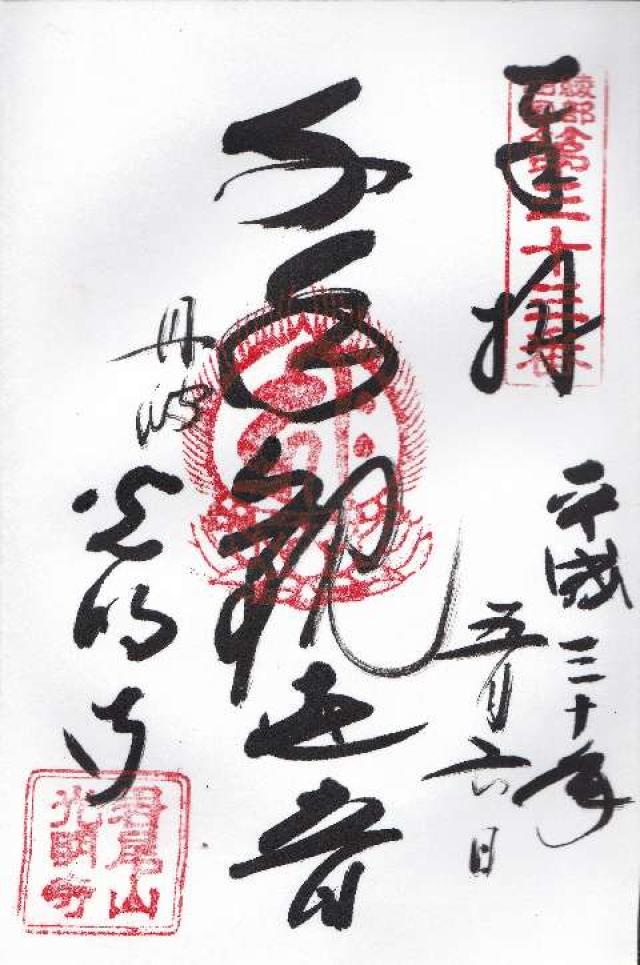 奉拝
綾部西国第三十三番
平成三十年
五月六日
千手観世音
丹波
光明寺
君尾山
光明寺